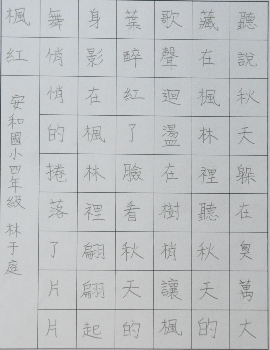 聽說秋天躲在奧萬大
藏在楓林裡聽秋天的
歌聲迴盪在樹梢讓楓
葉醉紅了臉看秋天的
身影在楓林裡翩翩起
舞悄悄的捲落了片片
楓紅 安和國小四年級 林于庭